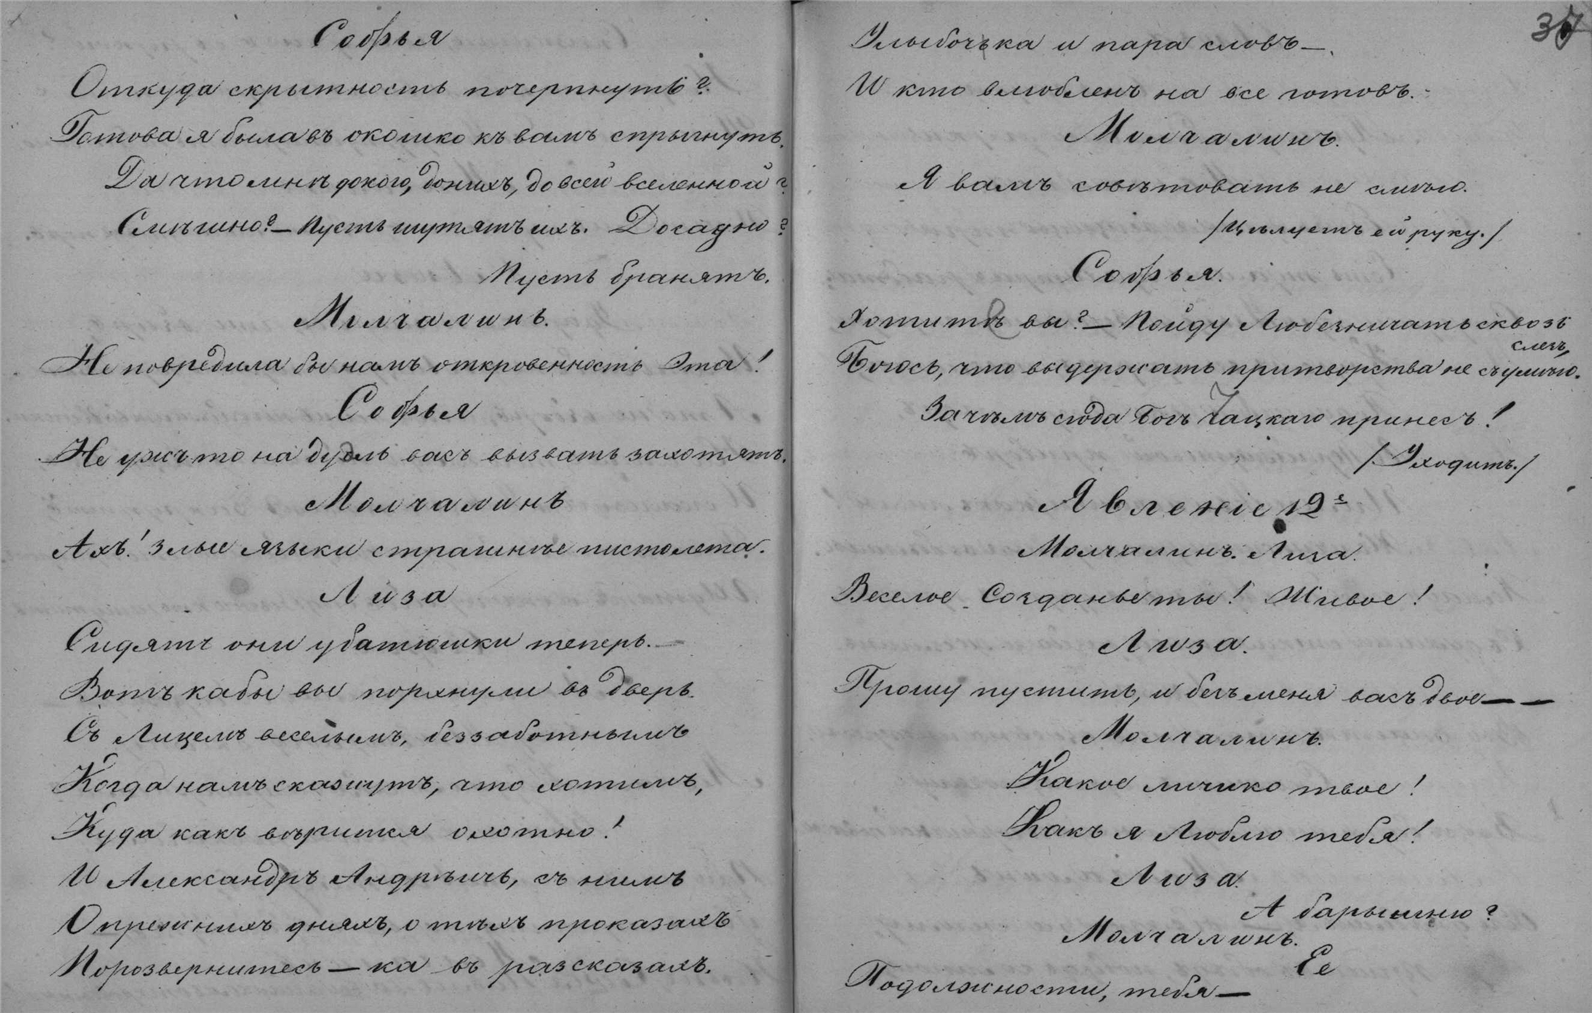 Софья
Откуда скрытность почерпнуть?
Готова я была въ окошко къ вамъ спрыгнуть.
Да что мнѣ до кого, до нихъ, до всей вселенной?
Смѣшно? — Пусть шутятъ ихъ. Досадно?
Пусть бранятъ.
Молчалинъ.
Не повредила бы намъ откровенность эта!
Софья
Не ужъ то на дуэль васъ вызвать захотятъ.
Молчалинъ
Ахъ! злые языки страшнѣе пистолета.
Лиза
Сидятъ они у батюшки теперь. —
Вотъ кабы вы порхнули въ дверь
Съ Лицемъ веселымъ, беззаботнымъ
Когда намъ скажутъ, что хотимъ,
Куда какъ вѣрится охотно!
И Александръ Андрѣичь, съ нимъ
О прежнихъ дняхъ, о тѣхъ проказахъ
Поразвернитесь — ка въ разсказахъ.
37
Улыбочька и пара словъ —.
И кто влюбленъ на все готовъ. -
Молчалинъ.
Я вамъ совѣтовать не смѣю.
/Цѣлуетъ ей руку./
Софья.
Хотите вы? — Пойду Любезничать сквозь
слезъ,
Боюсь, что выдержать притворства не съумѣю.
Зачѣмъ сюда Богъ Чацкаго принесъ!
/Уходитъ./
Явленіе 12е
Молчалинъ. Лиза.
Веселое созданье ты! Живое!
Лиза.
Прошу пустить, и безъ меня васъ двое — —
Молчалинъ.
Какое личико твое!
Какъ я Люблю тебя!
Лиза.
А барышню?
Молчалинъ.
Ее
По должности, тебя —